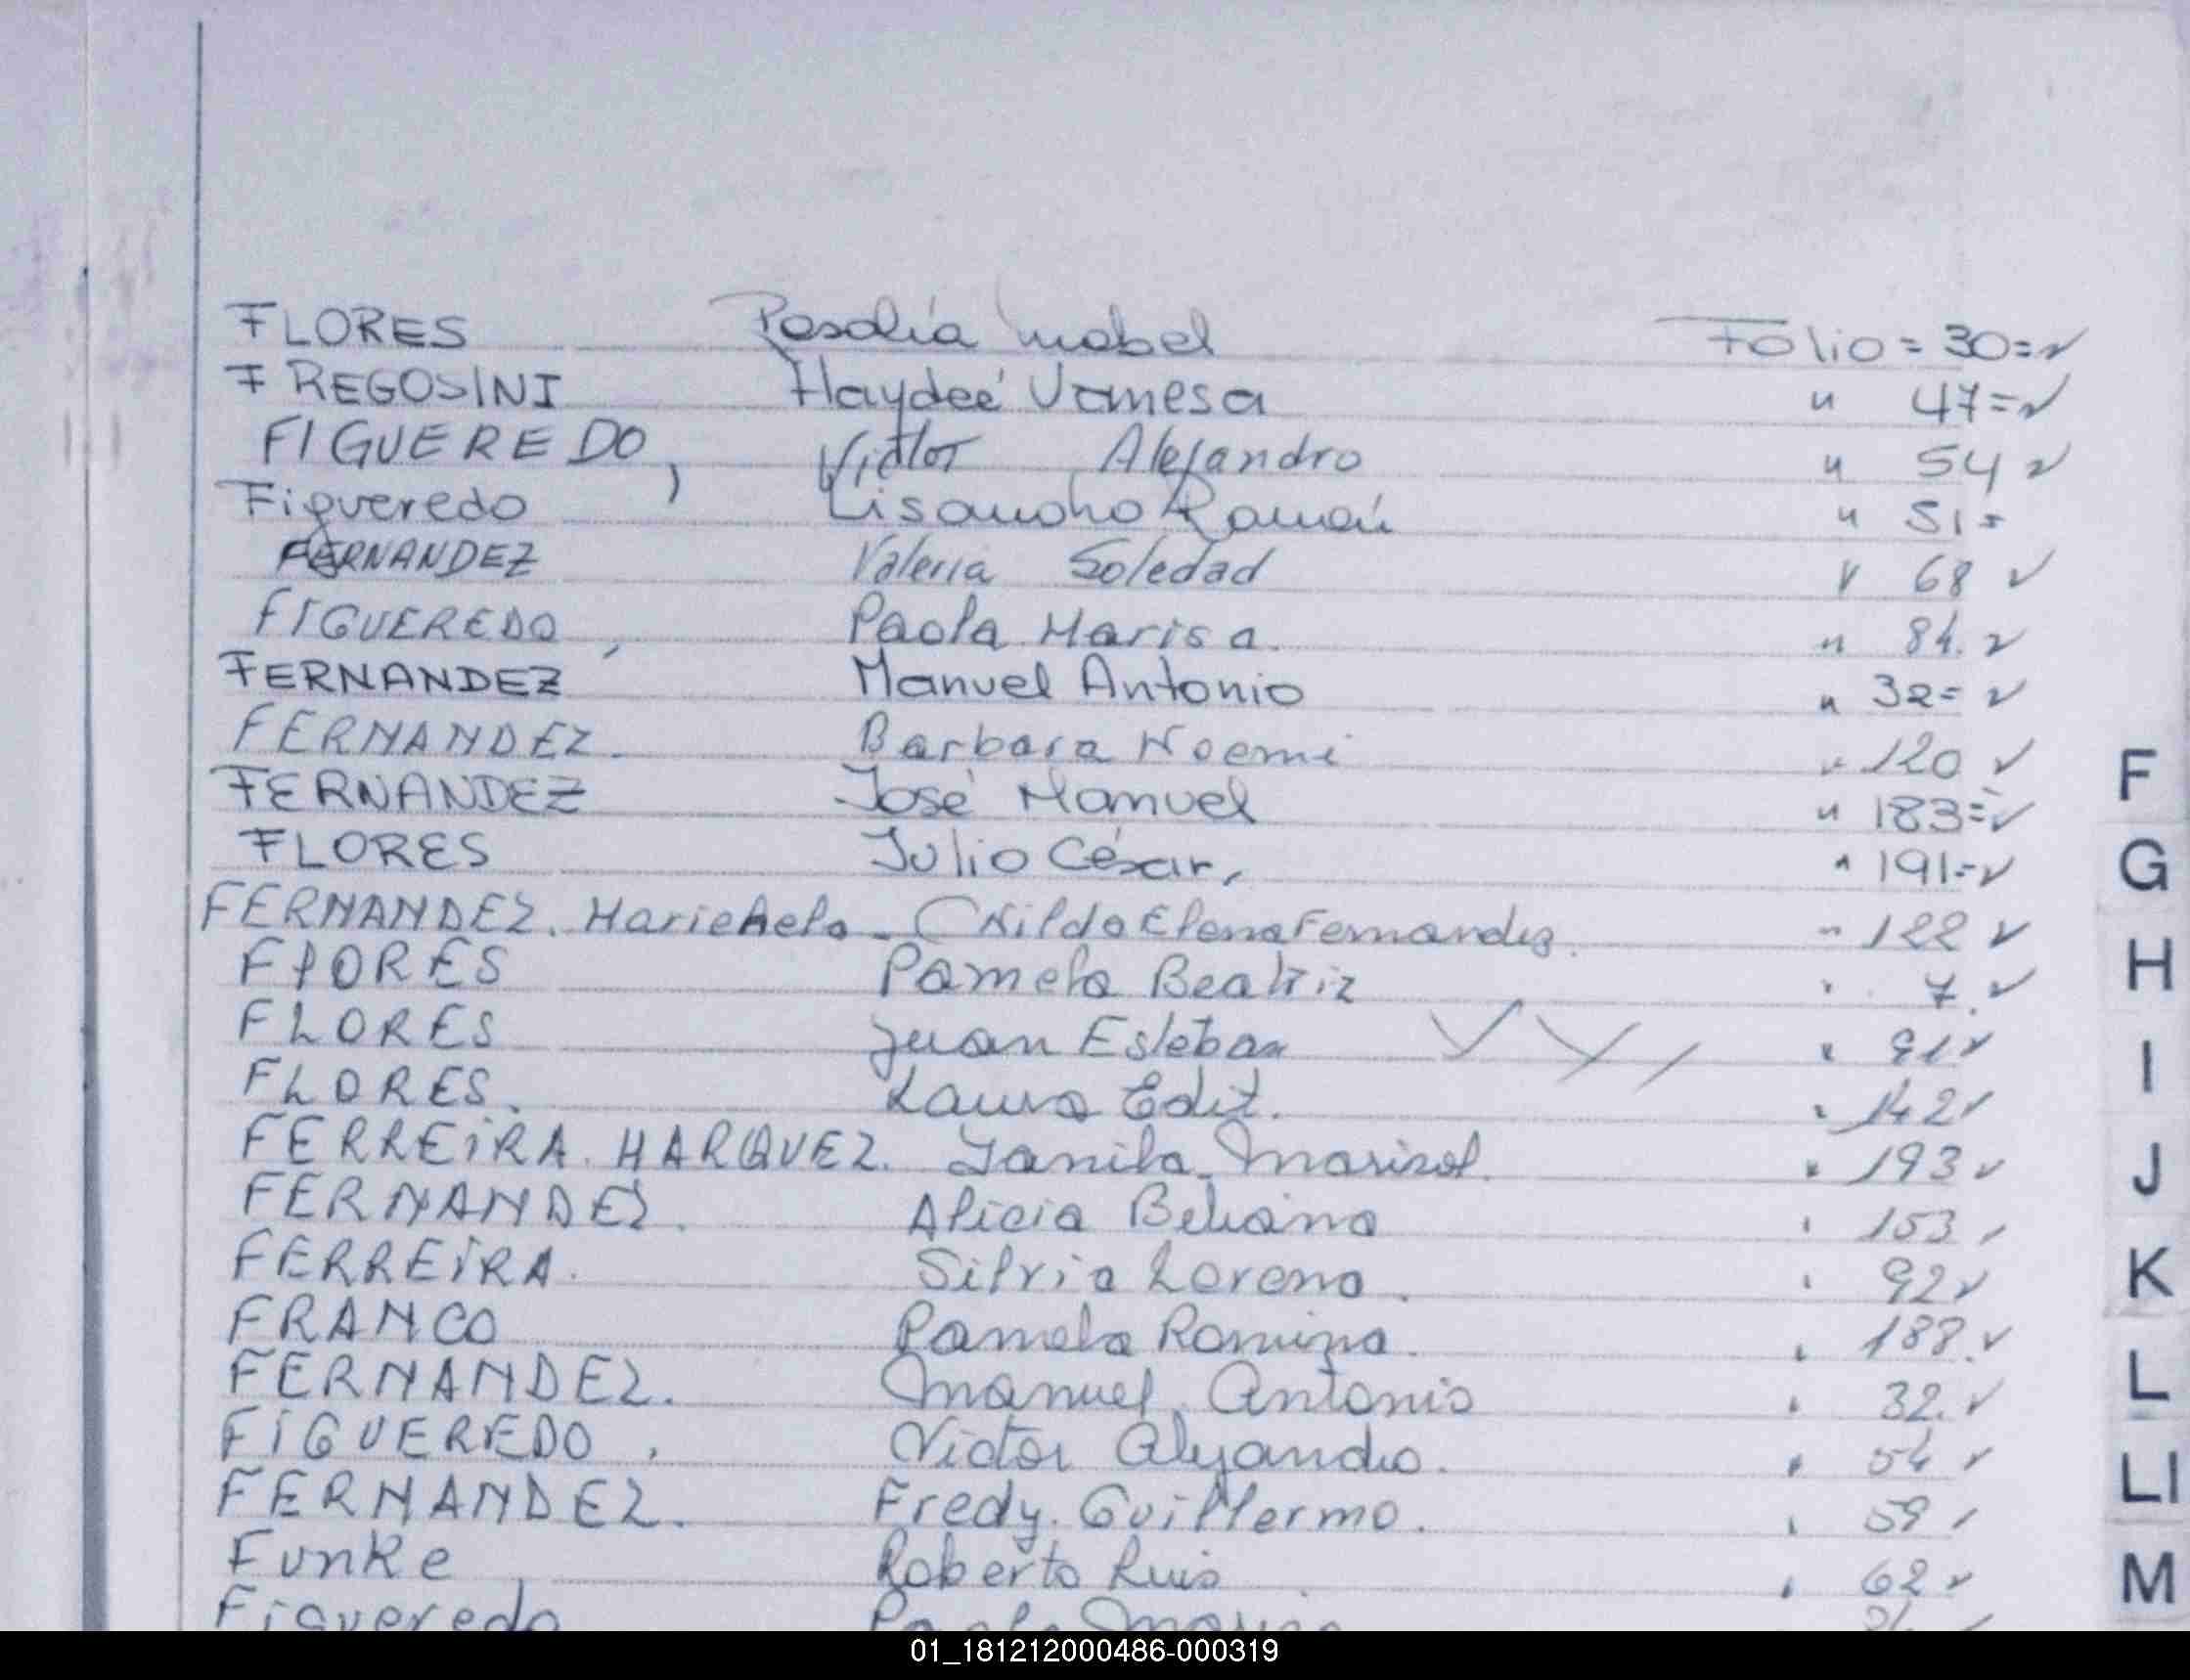 FLORES Rosalía Mabel Folio = 30 =
FREGOSINI Haydeé Vanesa " 47 =
FIGUEREDO, Victor Alejandro " 54
Figueredo Lisandro Ramón " 51 =
FERNANDEZ Valeria Soledad " 68
FIGUEREDO, Paola Marisa " 84.
FERNANDEZ Manuel Antonio " 32 =
FERNANDEZ. Barbara Noemi " 120
FERNANDEZ José Manuel " 183 =
FLORES Julio César, " 191 =
FERNANDEZ. Marichelo - (Nilda Elena Fernandez. " 122
FLORES Pamela Beatriz " 7.
FLORES Juan Esteban " 91
FLORES. Laura Edit. " 142
FERREIRA. MARQUEZ. Yanila Marisol. " 193
FERNANDEZ. Alicia Beliana " 153
FERREIRA. Silvia Lorena. " 92
FRANCO Pamela Romina. " 188.
FERNANDEZ. Manuel Antonio " 32.
FIGUEREDO, Victor Alejandro. " 54
FERNANDEZ. Fredy. Guillermo. " 59
Funke, Roberto Luis. " 62
Figueredo Paola Marisa
F
G
H
I
J
K
L
Ll
M
01_181212000486-000319